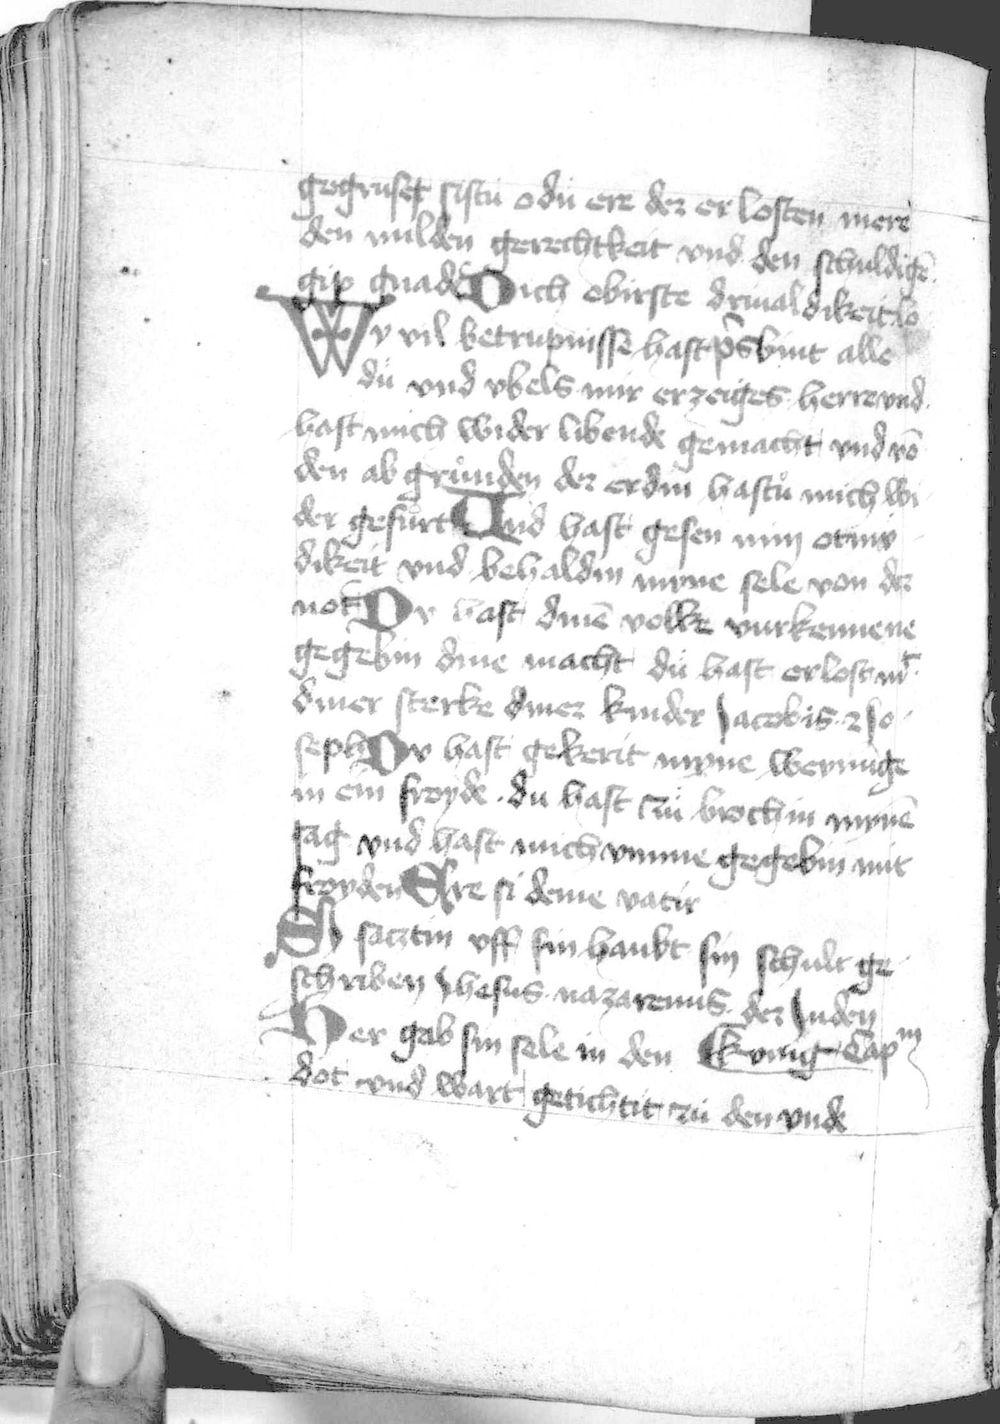 gegruset sistu o du ere der er losten mere
den milden gerechtkeit vnd den schuldigē
gip gnade Dich obirste driualdikeit lo
Wv vil betrupnisse hast p̄s bint alle
du vnd vbels mir erzeiges herre vnd
hast mich wider libende gemacht vnd vō
den ab grůnden der erdin hastů mich wi
der gefůrt Vnd hast gesen min otmv
dikeit vnd behaldin myne sele von der
not Dv hast dinē volke vurkennene
gegebin dine macht dů hast erlost mī
diner sterke diner kinder Jacobis ⁊ Jo
seph Dv hast gekerit myne weynūge
in ein froyde . du hast zů brochin mynē
sag vnd hast mich vmme gegebin mit
froyden Ere si deme vatir
Sy sacztin vff sin haubt sin schult ge
schriben Jhesus nazarenus der Juden
Her gab sin sele in den kvnig Capm
dot vnd wart getichtit zů den vnde